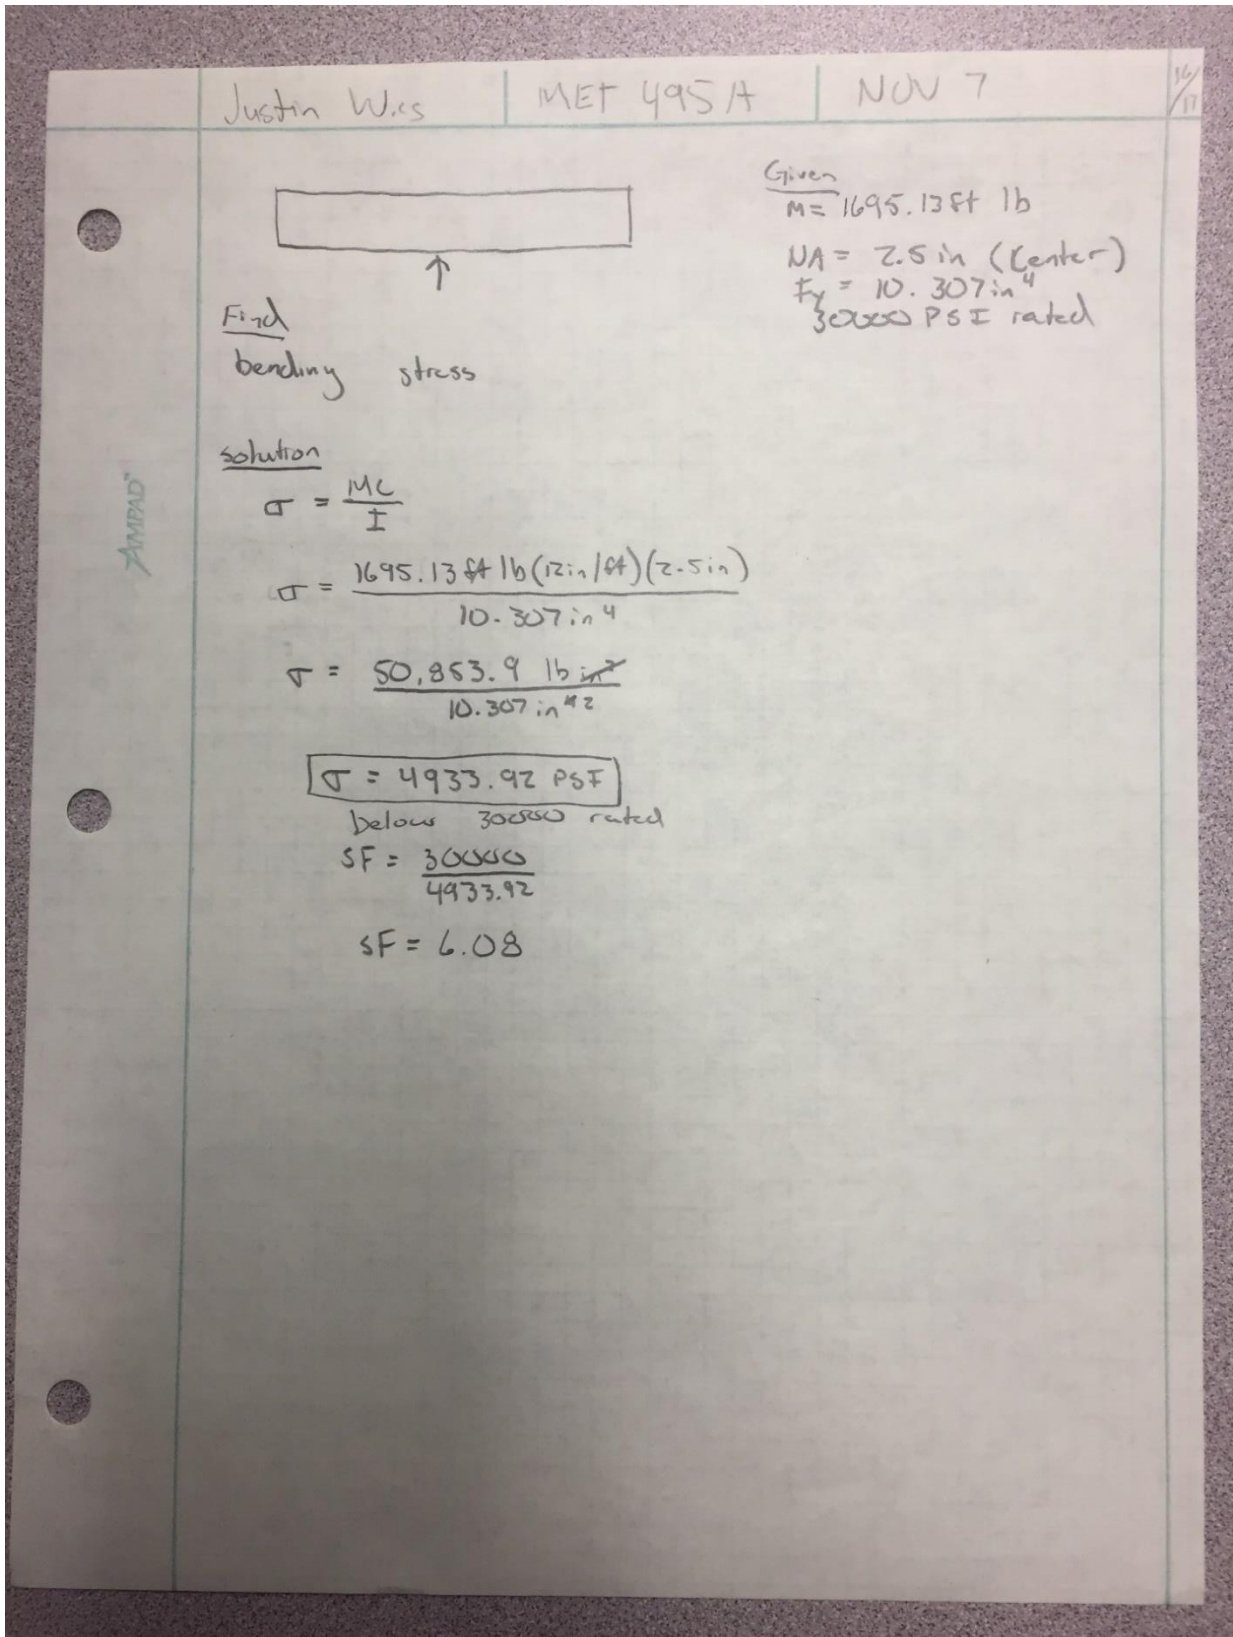 Justin MET 495A NOV 7 16/17
Given
M = 1695.13 ft lb
NA = 2.5 in (Center)
Iy = 10.307 in⁴
30000 PSI rated
Find
bending stress
AMPAD™
solution
σ = MC
I
σ = 1695.13 ft lb (12 in/ft)(2.5 in)
10.307 in⁴
σ = 50,853.9 lb in²
10.307 in⁴ ²
σ = 4933.92 PSI
below 30000 rated
SF = 30000
4933.92
SF = 6.08